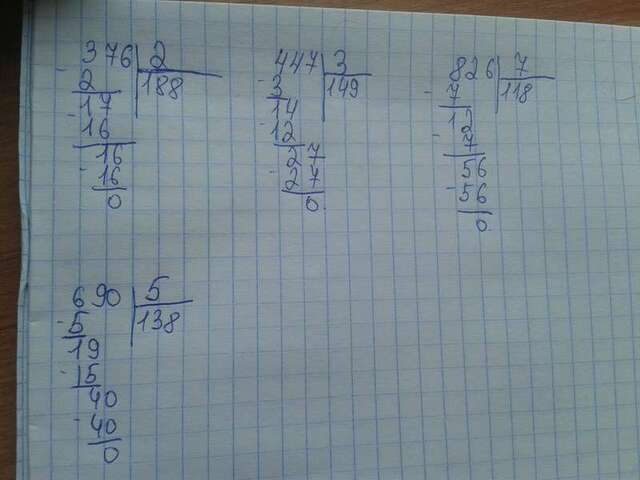 376 2
- 2 188
17
- 16
16
- 16
0
447 3
- 3 149
14
- 12
27
- 27
0
826 7
- 7 118
12
- 7
56
- 56
0
690 5
- 5 138
19
- 15
40
- 40
0